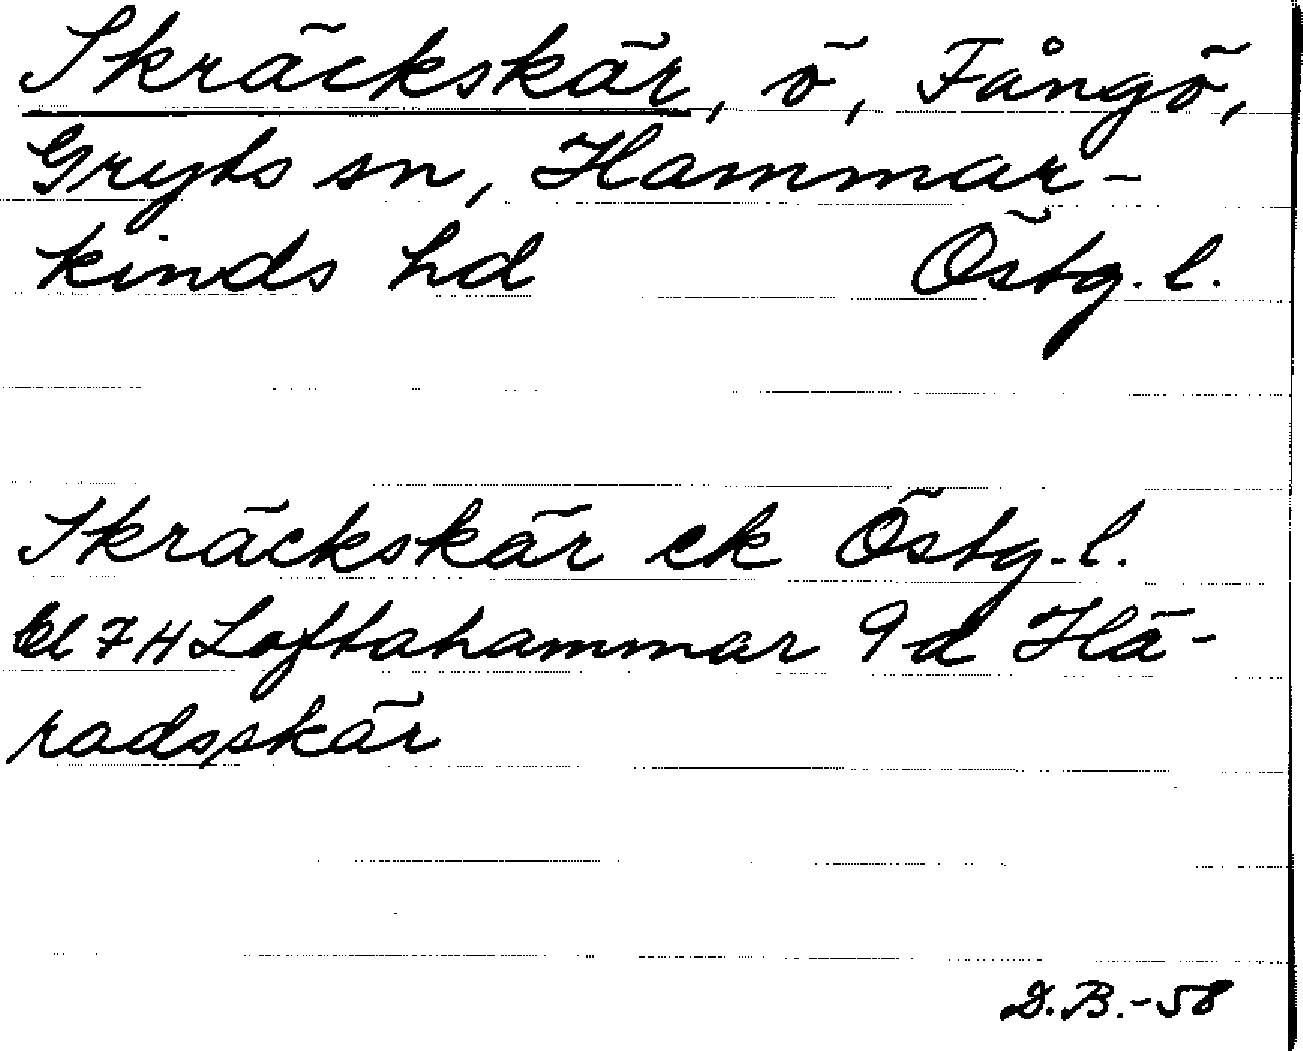 Skräckskär, ö, Fångö,
Gryts sn, Hammar-
kinds hd Östg. l.
Skräckskär ek Östg. l.
bl 7H Loftahammar 9d Hä-
radsskär
D.B.-58